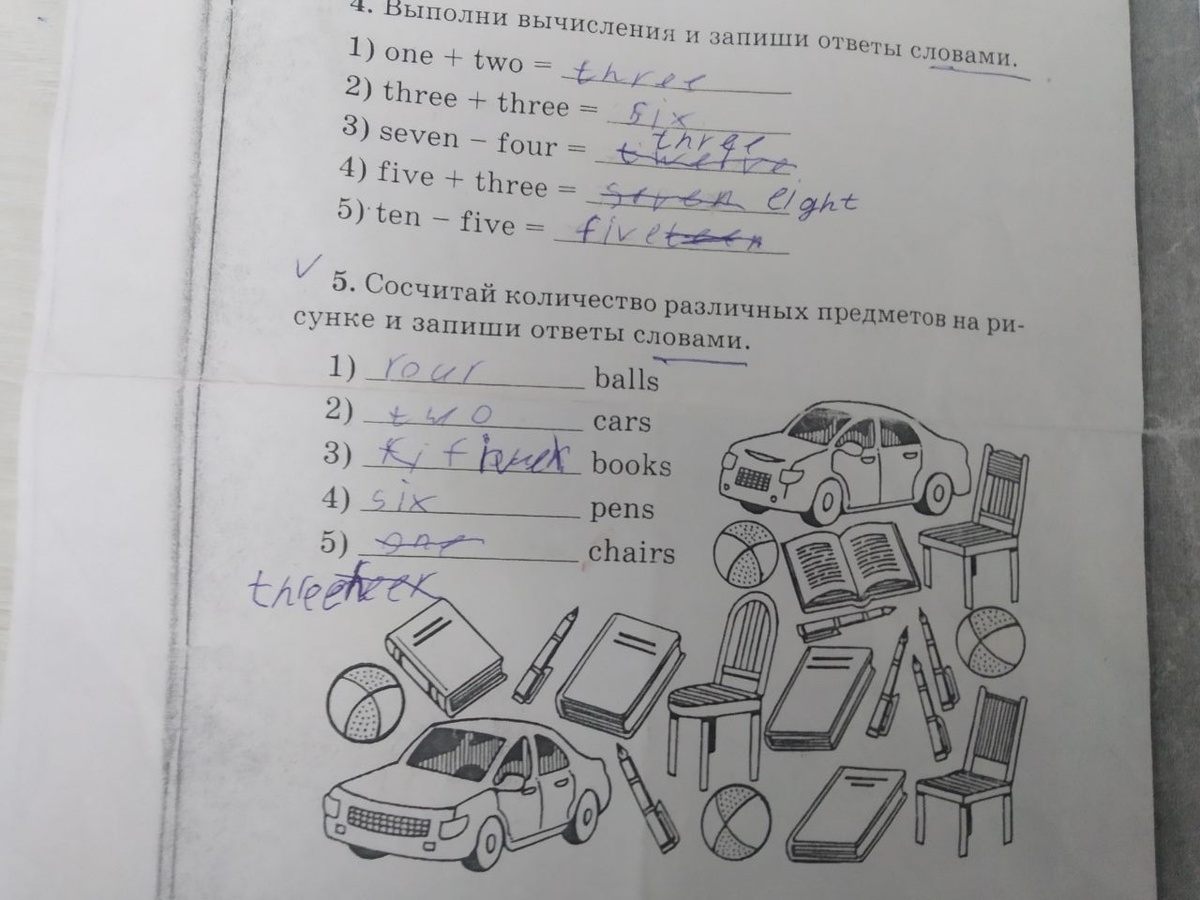 4. Выполни вычисления и запиши ответы словами.
1) one + two = three
2) three + three = six
three
3) seven – four = twelve
4) five + three = seven eight
5) ten – five = fiveteen
5. Сосчитай количество различных предметов на ри-
сунке и запиши ответы словами.
1) rour balls
2) two cars
3) books
4) six pens
5) one chairs
three